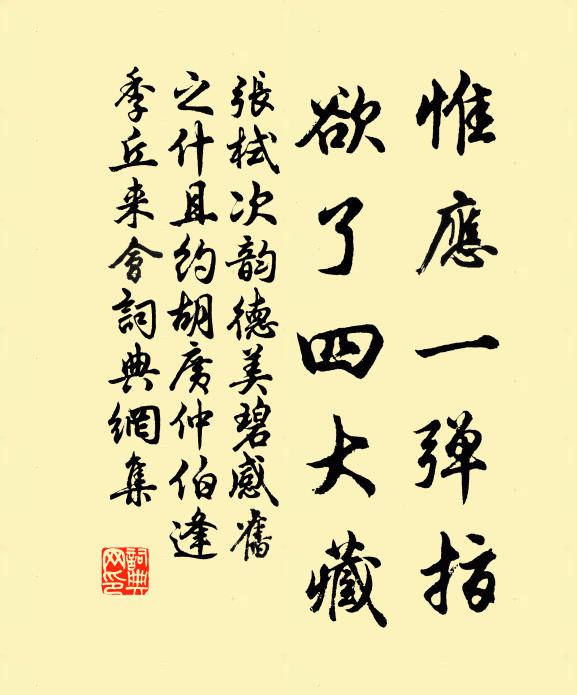 惟應一弹指
欲了四大藏
張栻次韵德美碧感舊
之什且约胡廣仲伯逢
季丘来會詞典網集
詞典
网印